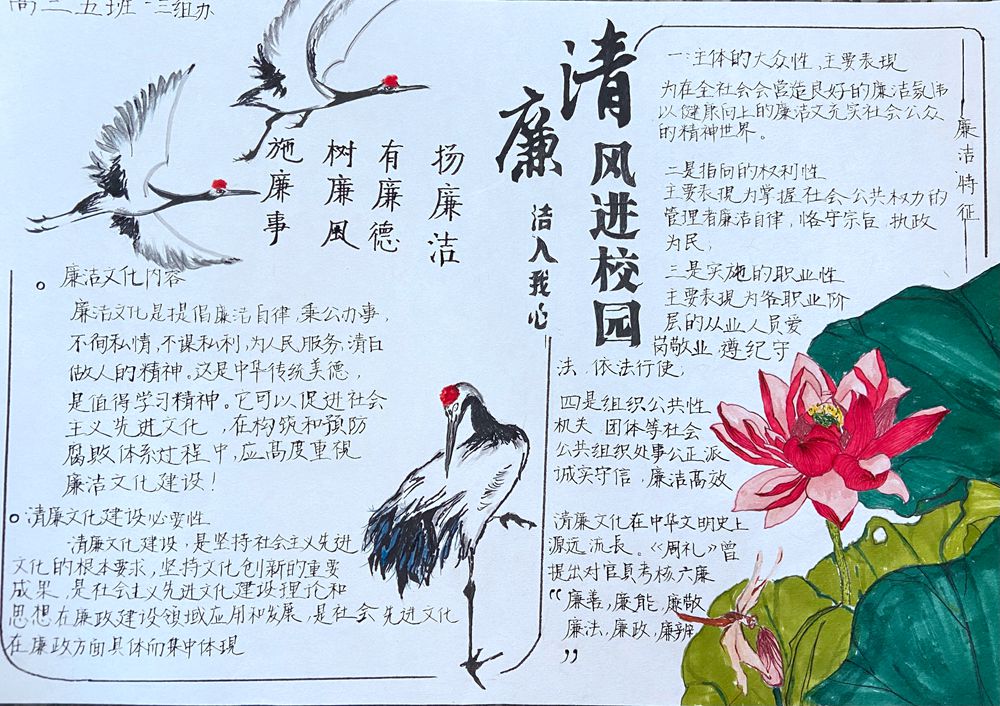 高三五班 三组办
清风进校园
廉洁入我心
扬廉洁
有廉德
树廉風
施廉事
廉洁文化内容
廉洁文化是提倡廉洁自律,秉公办事,
不徇私情,不谋私利,为人民服务,清白
做人的精神。这是中华传统美德,
是值得学习精神。它可以促进社会
主义先进文化,在构筑和预防
腐败体系过程中,应高度重視
廉洁文化建设!
清廉文化建设必要性
清廉文化建设,是坚持社会主义先进
文化的根本要求,坚持文化创新的重要
成果,是社会主义先进文化建设理论和
思想在廉政建设领域应用和发展,是社会先进文化
在廉政方面具体而集中体现
廉洁特征
一:主体的大众性,主要表現
为在全社会会营造良好的廉洁氛围
以健康向上的廉洁文充实社会公众
的精神世界。
二是指向的权利性
主要表現为掌握社会公共权力的
管理者廉洁自律,恪守宗旨,执政
为民,
三是实施的职业性
主要表現为各职业阶
层的从业人员爱
岗敬业,遵纪守
法,依法行使,
四是组织公共性
机关 团体等社会
公共组织处事公正派
诚实守信,廉洁高效
清廉文化在中华文明史上
源远流长。《周礼》曾
提出对官員考核六廉
“廉善,廉能,廉敬
廉法,廉政,廉辨
”